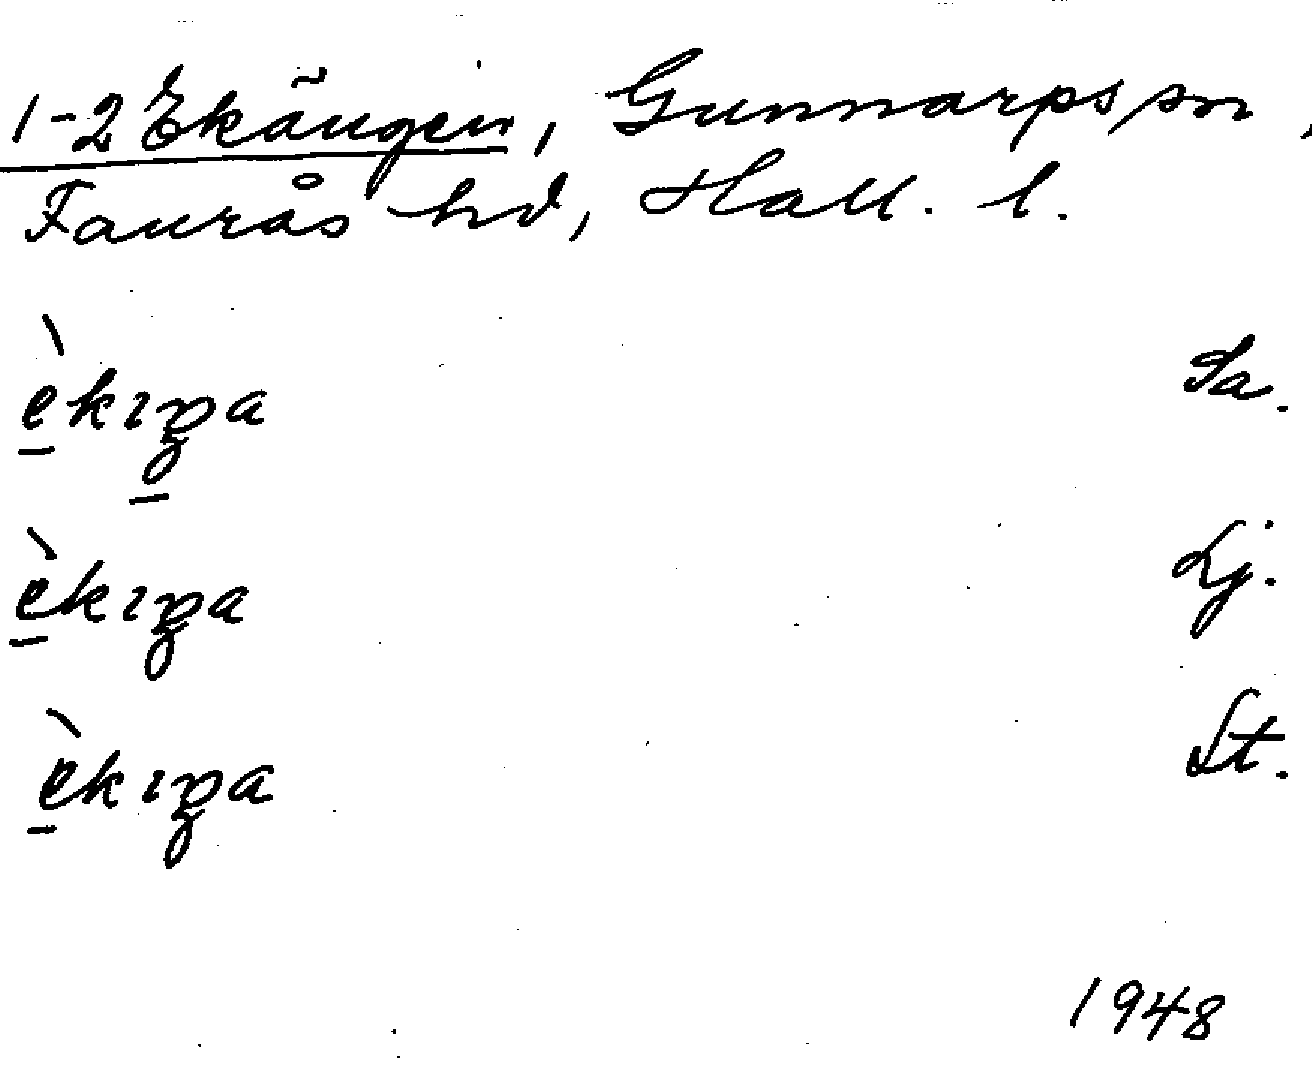 1-2 Ekängen, Gunnarps sn,
Faurås hd, Hall. l.
èkıŋa Sa.
èkıŋa Lj.
èkıŋa St.
1948